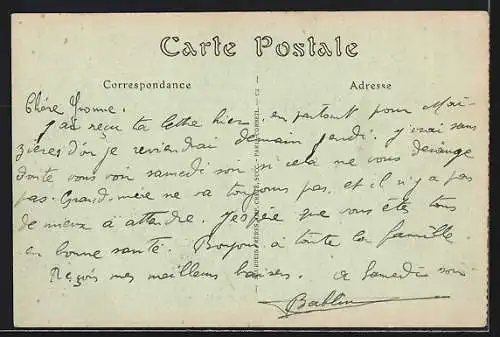 Carte Postale
Correspondance
Adresse
Chère Yvonne.
J'ai reçu ta lettre hier en partant pour Mou-
zières d'où je reviendrai demain jeudi. J'irai sans
doute vous voir samedi soir si cela ne vous dérange
pas. Grand-mère ne va toujours pas, et il n'y a pas
de mieux à attendre. J'espère que vous êtes tous
en bonne santé. Bonjour à toute la famille.
Reçois mes meilleurs baisers. A Samedi soir